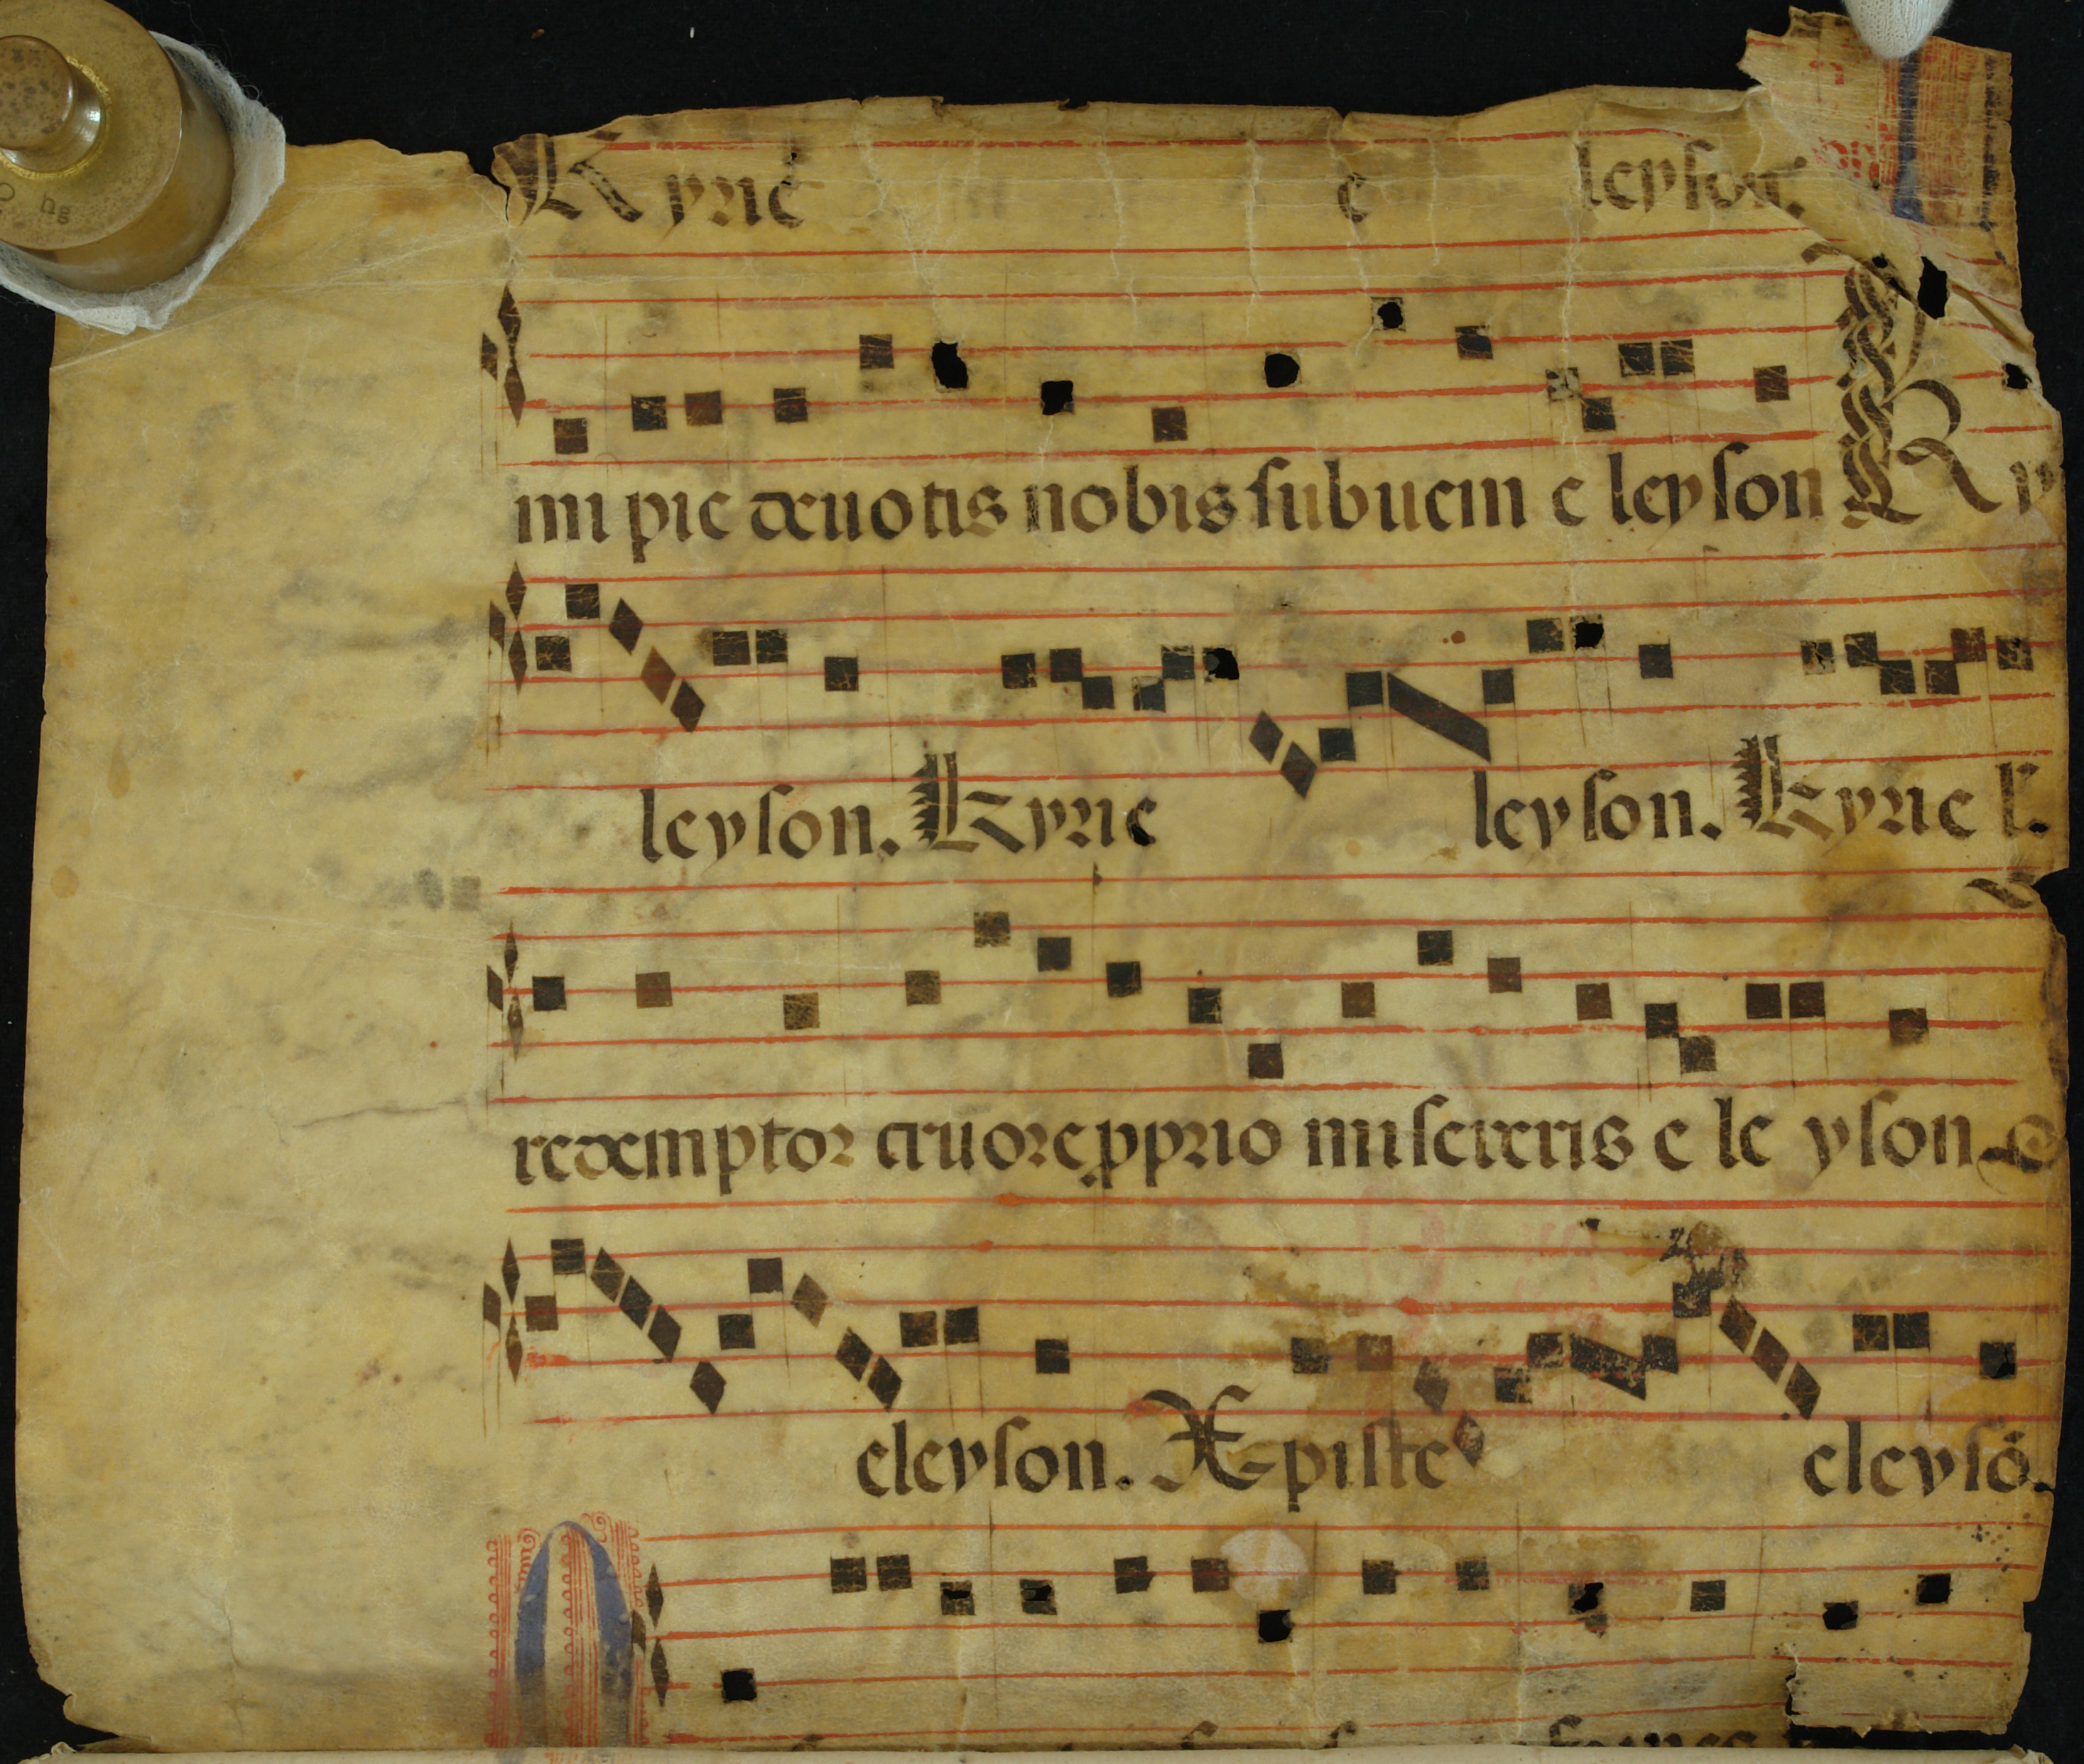 Kyrie e leyson.
mi pie deuotis nobis subueni e leyson Ky
leyson. Kyrie leyson. Kyrie l.
redemptor cruore pprio misereris e le yson
eleyson. Xpiste eleysō.